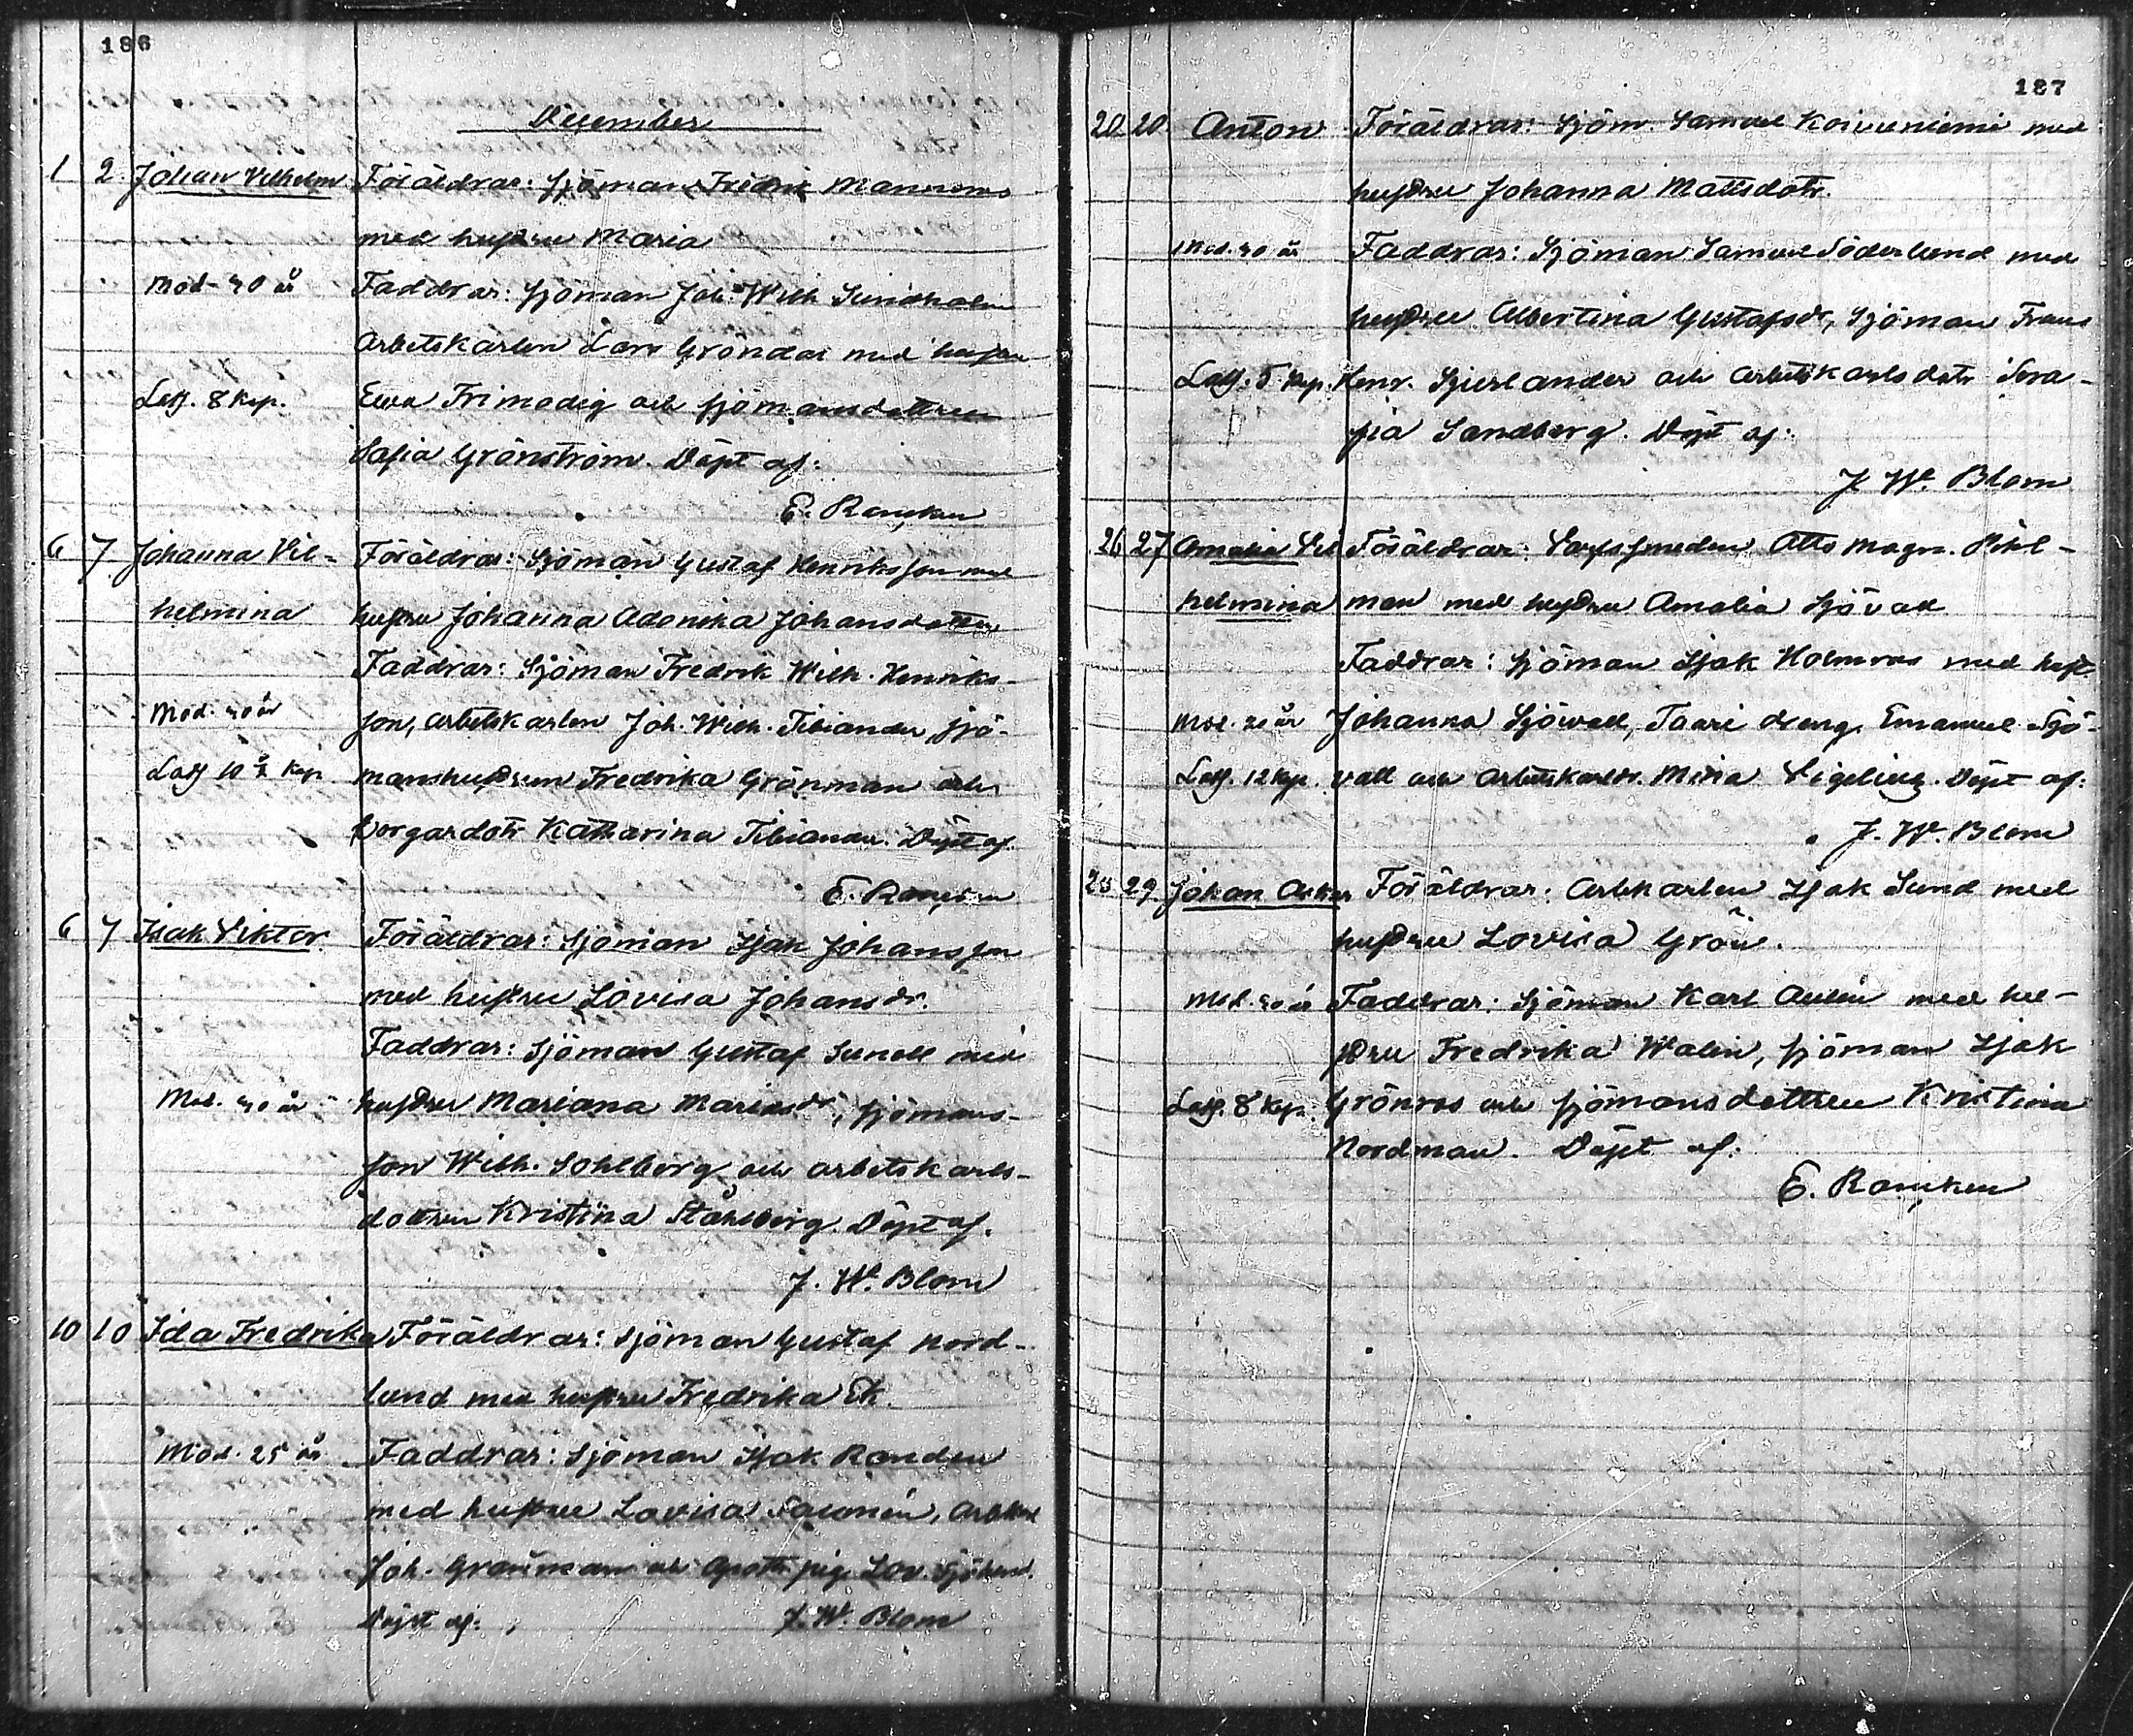 186
December
1 2. Johan Vilhelm Föräldrar: Sjöman Fredrik Mannroos
med hustru Maria
Mod. 40 år Faddrar: Sjöman Joh. Wilh Sundholm
Arbetskarlen Lars Gröndal med hustru
Lösf. 8 kop. Ewa Frimodig och sjömansdottren
Sofia Grönström. Döpt af:
E. Rancken
6 7 Johanna Vil- Föräldrar: Sjöman Gustaf Henriksson med
helmina hustru Johanna Adonika Johansdotter
Faddrar: Sjöman Fredrik Wilh. Henriks-
Mod. 40 år son, arbetskarlen Joh. Wilh. Tibiander, sjö-
Lösf 10 kop. manshustrun Fredrika Grönman och
borgardotr Katharina Tibiander. Döpt af.
E. Rancken
6 7 Isak Viktor Föräldrar: Sjöman Isak Johansson
med hustru Lovisa Johansdr.
Faddrar: Sjöman Gustaf Sunell med
Mod. 40 år hustru Mariana Mariasdr, sjömans-
son Wilh. Sohlberg och arbetskarls-
dottren Kristina Ståhlberg. Döpt af.
J. W. Blom
10 10 Ida Fredrika Föräldrar: Sjöman Gustaf Nord-
lund med hustru Fredrika Ek.
Mod. 25 år Faddrar: Sjöman Isak Randen
med hustru Lovisa Salonen, Arbkarl
Joh. Grönman och Apoth. pig. Lov. Sjölund.
Döpt af: J. W. Blom
187
20 20 Anton Föräldrar: Sjöm. Samuel Koivuniemi med
hustru Johanna Mattsdotr.
Mod. 40 år Faddrar: Sjöman Samuel Söderlund med
hustru Albertina Gustafsdr, Sjöman Frans
Lösf. 5 kop. Henr. Sjerlander och arbetskarlsdotr Sera-
fia Sandberg. Döpt af:
J. W. Blom
26 27 Amalia Vil Föräldrar: Otto Magn. Pihl-
helmina man med hustru Amalia Sjövall
Faddrar: Sjöman Isak Holmroos med hust.
Mod. 20 år Johanna Sjöwall, dreng. Emanuel Sjö-
Lösf. 12 kop. vall och Arbetskarldr. Mina Vigelius. Döpt af:
J. W. Blom
28 29. Johan Oskar Föräldrar: Arbkarlen Isak Sund med
hustru Lovisa Grön.
Mod. 40 år Faddrar: Sjöman Karl Aulin med hu-
stru Fredrika Walin, sjöman Isak
Lösf. 8 kop. Grönros och sjömansdottren Kristina
Nordman. Döpt af:
E. Rancken